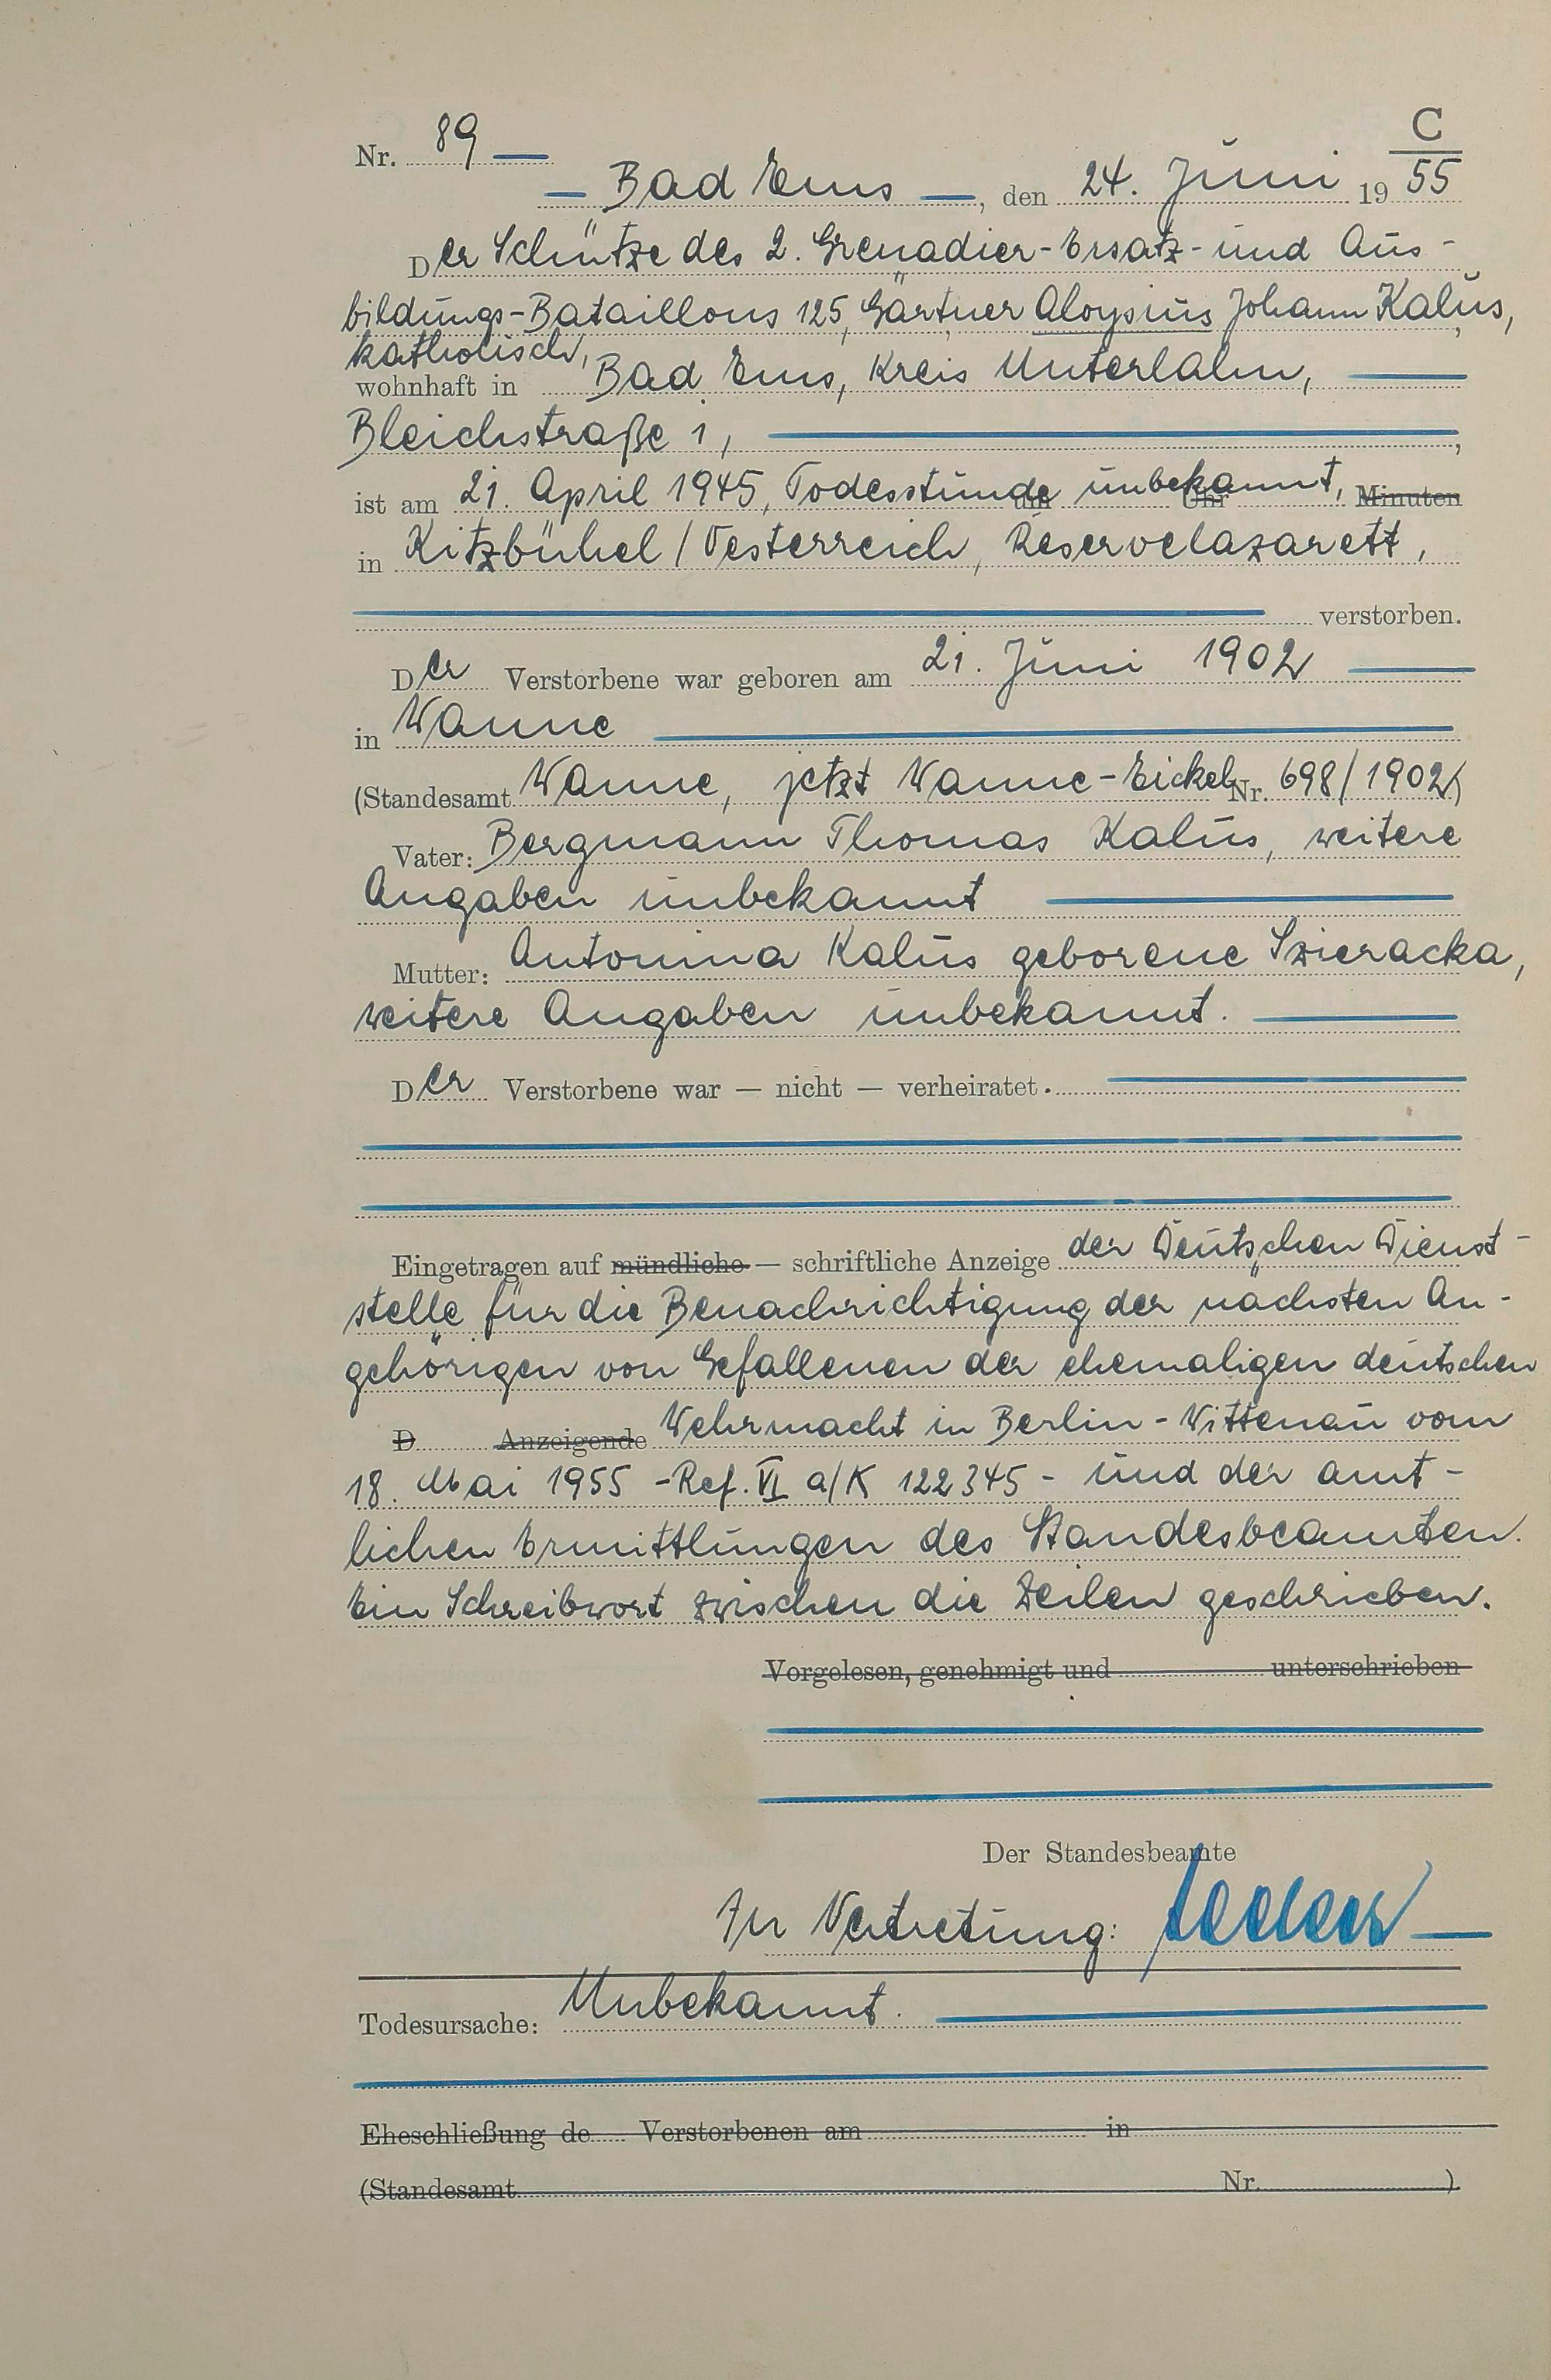 C
Nr. 89
Bad Ems, den 24. Juni 1955
Der Schütze des 2. Grenadier-Ersatz- und Aus-
bildungs-Bataillons 125, Gärtner Aloysius Johann Kalus,
katholisch,
wohnhaft in Bad Ems, Kreis Unterlahn,
Bleichstraße 1,
ist am 21. April 1945, Todesstunde um unbekannt, Uhr Minuten
in Kitzbühel / Oesterreich, Reservelazarett,
verstorben.
Der Verstorbene war geboren am 21. Juni 1902
in Wanne
(Standesamt Wanne, jetzt Wanne-Eickel Nr. 698/1902)
Vater: Bergmann Thomas Kalus, weitere
Angaben unbekannt
Mutter: Antonina Kalus geborene Szieracka,
weitere Angaben unbekannt.
Der Verstorbene war — nicht — verheiratet.
Eingetragen auf mündliche — schriftliche Anzeige der Deutschen Dienst-
stelle für die Benachrichtigung der nächsten An-
gehörigen von Gefallenen der ehemaligen deutschen
D Anzeigende Wehrmacht in Berlin-Wittenau vom
18. Mai 1955 -Ref. VI a/K 122345 - und der amt-
lichen Ermittlungen des Standesbeamten.
Ein Schreibwort zwischen die Zeilen geschrieben.
Vorgelesen, genehmigt und unterschrieben
Der Standesbeamte
In Vertretung:
Todesursache: Unbekannt.
Eheschließung de Verstorbenen am in
(Standesamt Nr. )